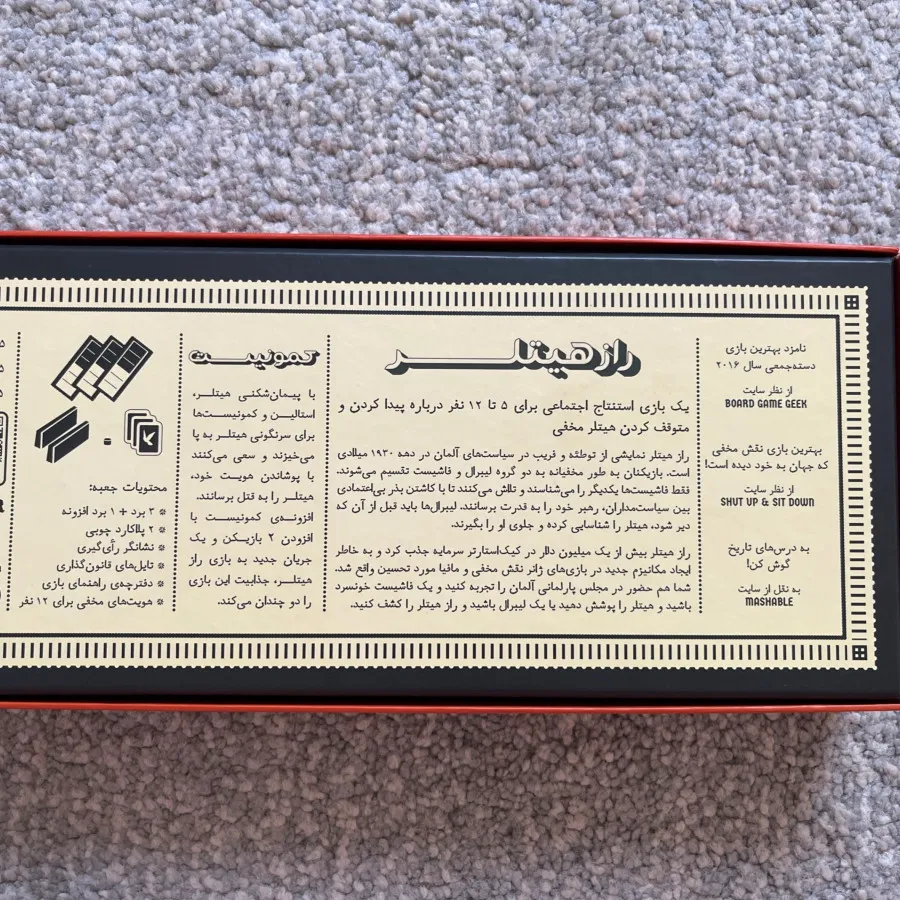 نامزد بهترین بازی
دسته‌جمعی سال ۲۰۱۶
از نظر سایت
BOARD GAME GEEK
بهترین بازی نقش مخفی
که جهان به خود دیده است!
از نظر سایت
SHUT UP & SIT DOWN
به درس‌های تاریخ
گوش کن!
به نقل از سایت
MASHABLE
راز هیتلر
یک بازی استنتاج اجتماعی برای ۵ تا ۱۲ نفر درباره پیدا کردن و
متوقف کردن هیتلر مخفی
راز هیتلر نمایشی از توطئه و فریب در سیاست‌های آلمان در دهه ۱۹۳۰ میلادی
است. بازیکنان به طور مخفیانه به دو گروه لیبرال و فاشیست تقسیم می‌شوند.
فقط فاشیست‌ها یکدیگر را می‌شناسند و تلاش می‌کنند تا با کاشتن بذر بی‌اعتمادی
بین سیاست‌مداران، رهبر خود را به قدرت برسانند. لیبرال‌ها باید قبل از آن که
دیر شود، هیتلر را شناسایی کرده و جلوی او را بگیرند.
راز هیتلر بیش از یک میلیون دلار در کیک‌استارتر سرمایه جذب کرد و به خاطر
ایجاد مکانیزم جدید در بازی‌های ژانر نقش مخفی و مافیا مورد تحسین واقع شد.
شما هم حضور در مجلس پارلمانی آلمان را تجربه کنید و یک فاشیست خونسرد
باشید و هیتلر را پوشش دهید یا یک لیبرال باشید و راز هیتلر را کشف کنید.
کمونیست
با پیمان‌شکنی هیتلر،
استالین و کمونیست‌ها
برای سرنگونی هیتلر به پا
می‌خیزند و سعی می‌کنند
با پوشاندن هویت خود،
هیتلر را به قتل برسانند.
افزونه‌ی کمونیست با
افزودن ۲ بازیکن و یک
جریان جدید به بازی راز
هیتلر، جذابیت این بازی
را دو چندان می‌کند.
محتویات جعبه:
* ۳ برد + ۱ برد افزونه
* ۲ پلاکارد چوبی
* نشانگر رأی‌گیری
* تایل‌های قانون‌گذاری
* دفترچه‌ی راهنمای بازی
* هویت‌های مخفی برای ۱۲ نفر